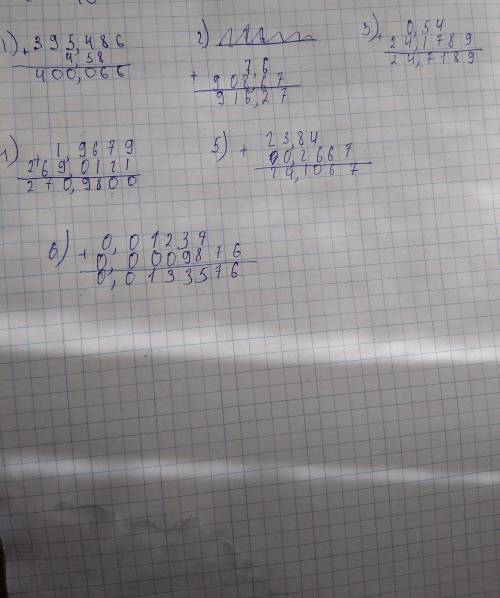 1) + 395,486
4,58
400,066
2)
+ 7,6
908,67
916,27
3) + 0,54
24,1789
24,7189
4) + 1,9679
269,0121
270,9800
5) + 23,84
00,2667
24,1067
6) + 0,01237
0,0009876
0,0133576